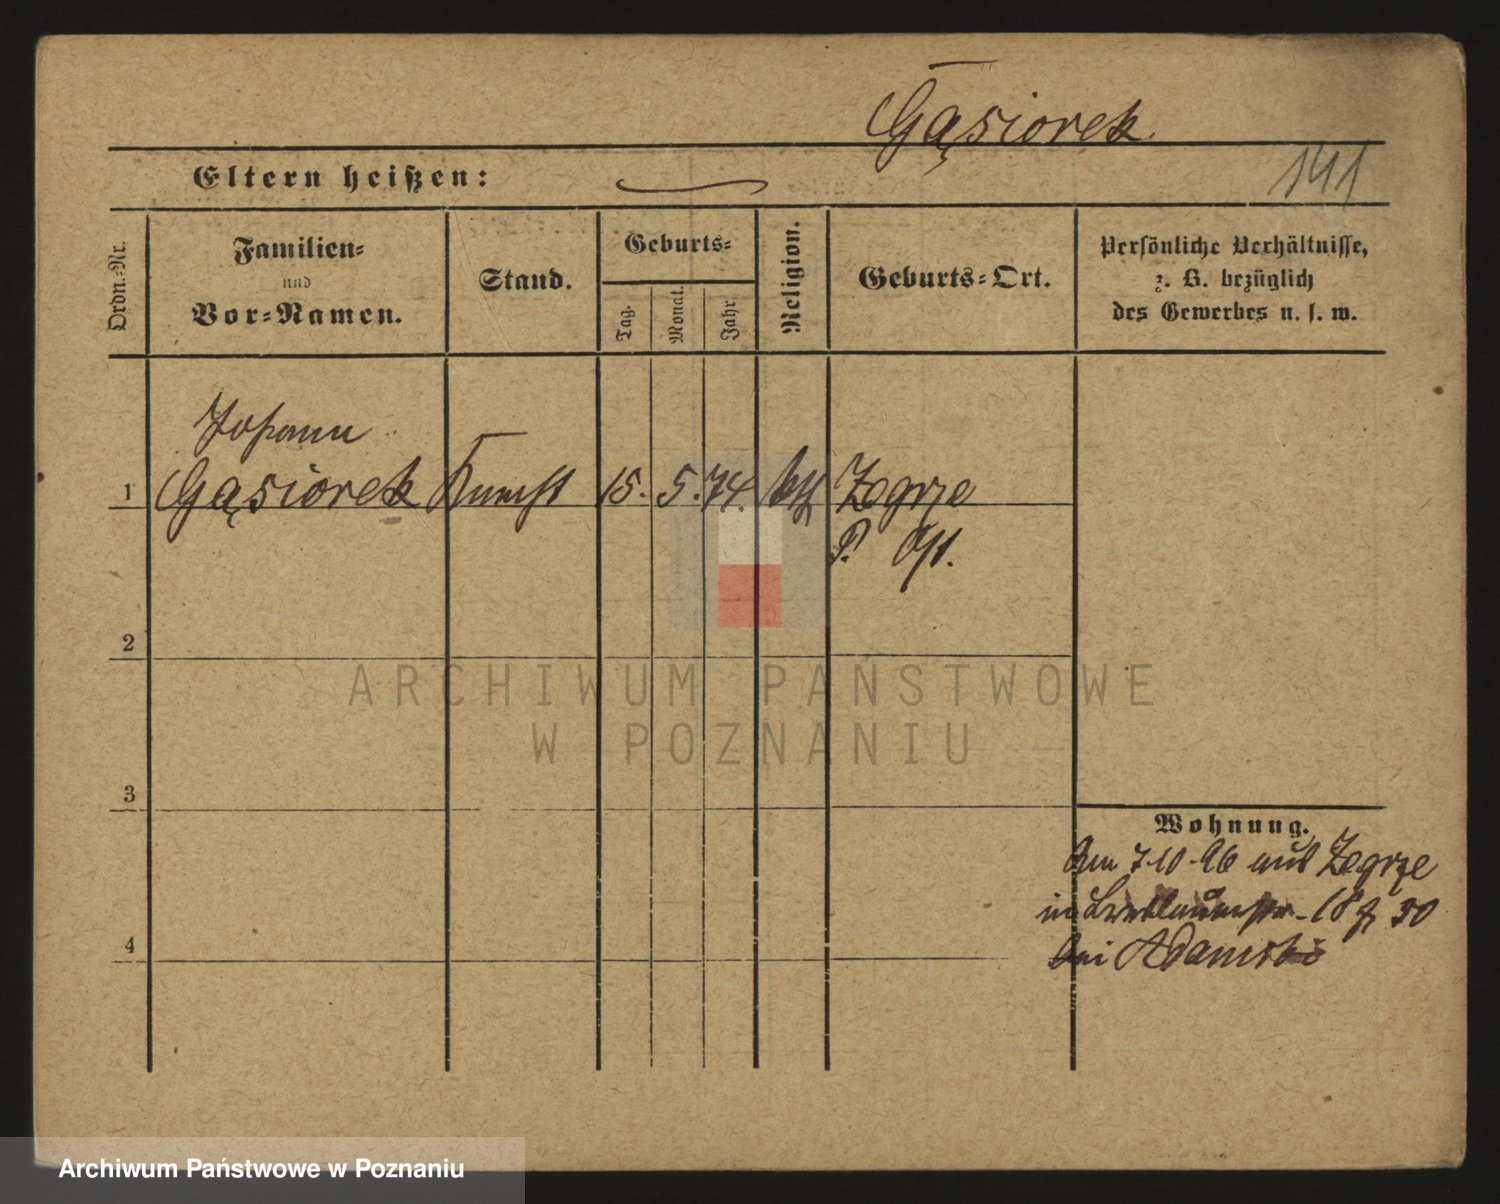 Gąsiorek
141
Eltern heißen:
Ordn.=Nr.
Familien=
und
Vor=Namen.
Stand.
Geburts=
Tag.
Monat.
Jahr.
Religion.
Geburts=Ort.
Persönliche Verhältnisse,
z. B. bezüglich
des Gewerbes u. s. w.
Johann
1 Gąsiorek Knecht 15. 5. 74. kth Zegrze
P. Ost.
2
3
4
Wohnung.
Am 7.10.96 aus Zegrze
in Breslauerstr. 18 30
bei Adamski
ARCHIWUM PAŃSTWOWE
W POZNANIU
Archiwum Państwowe w Poznaniu